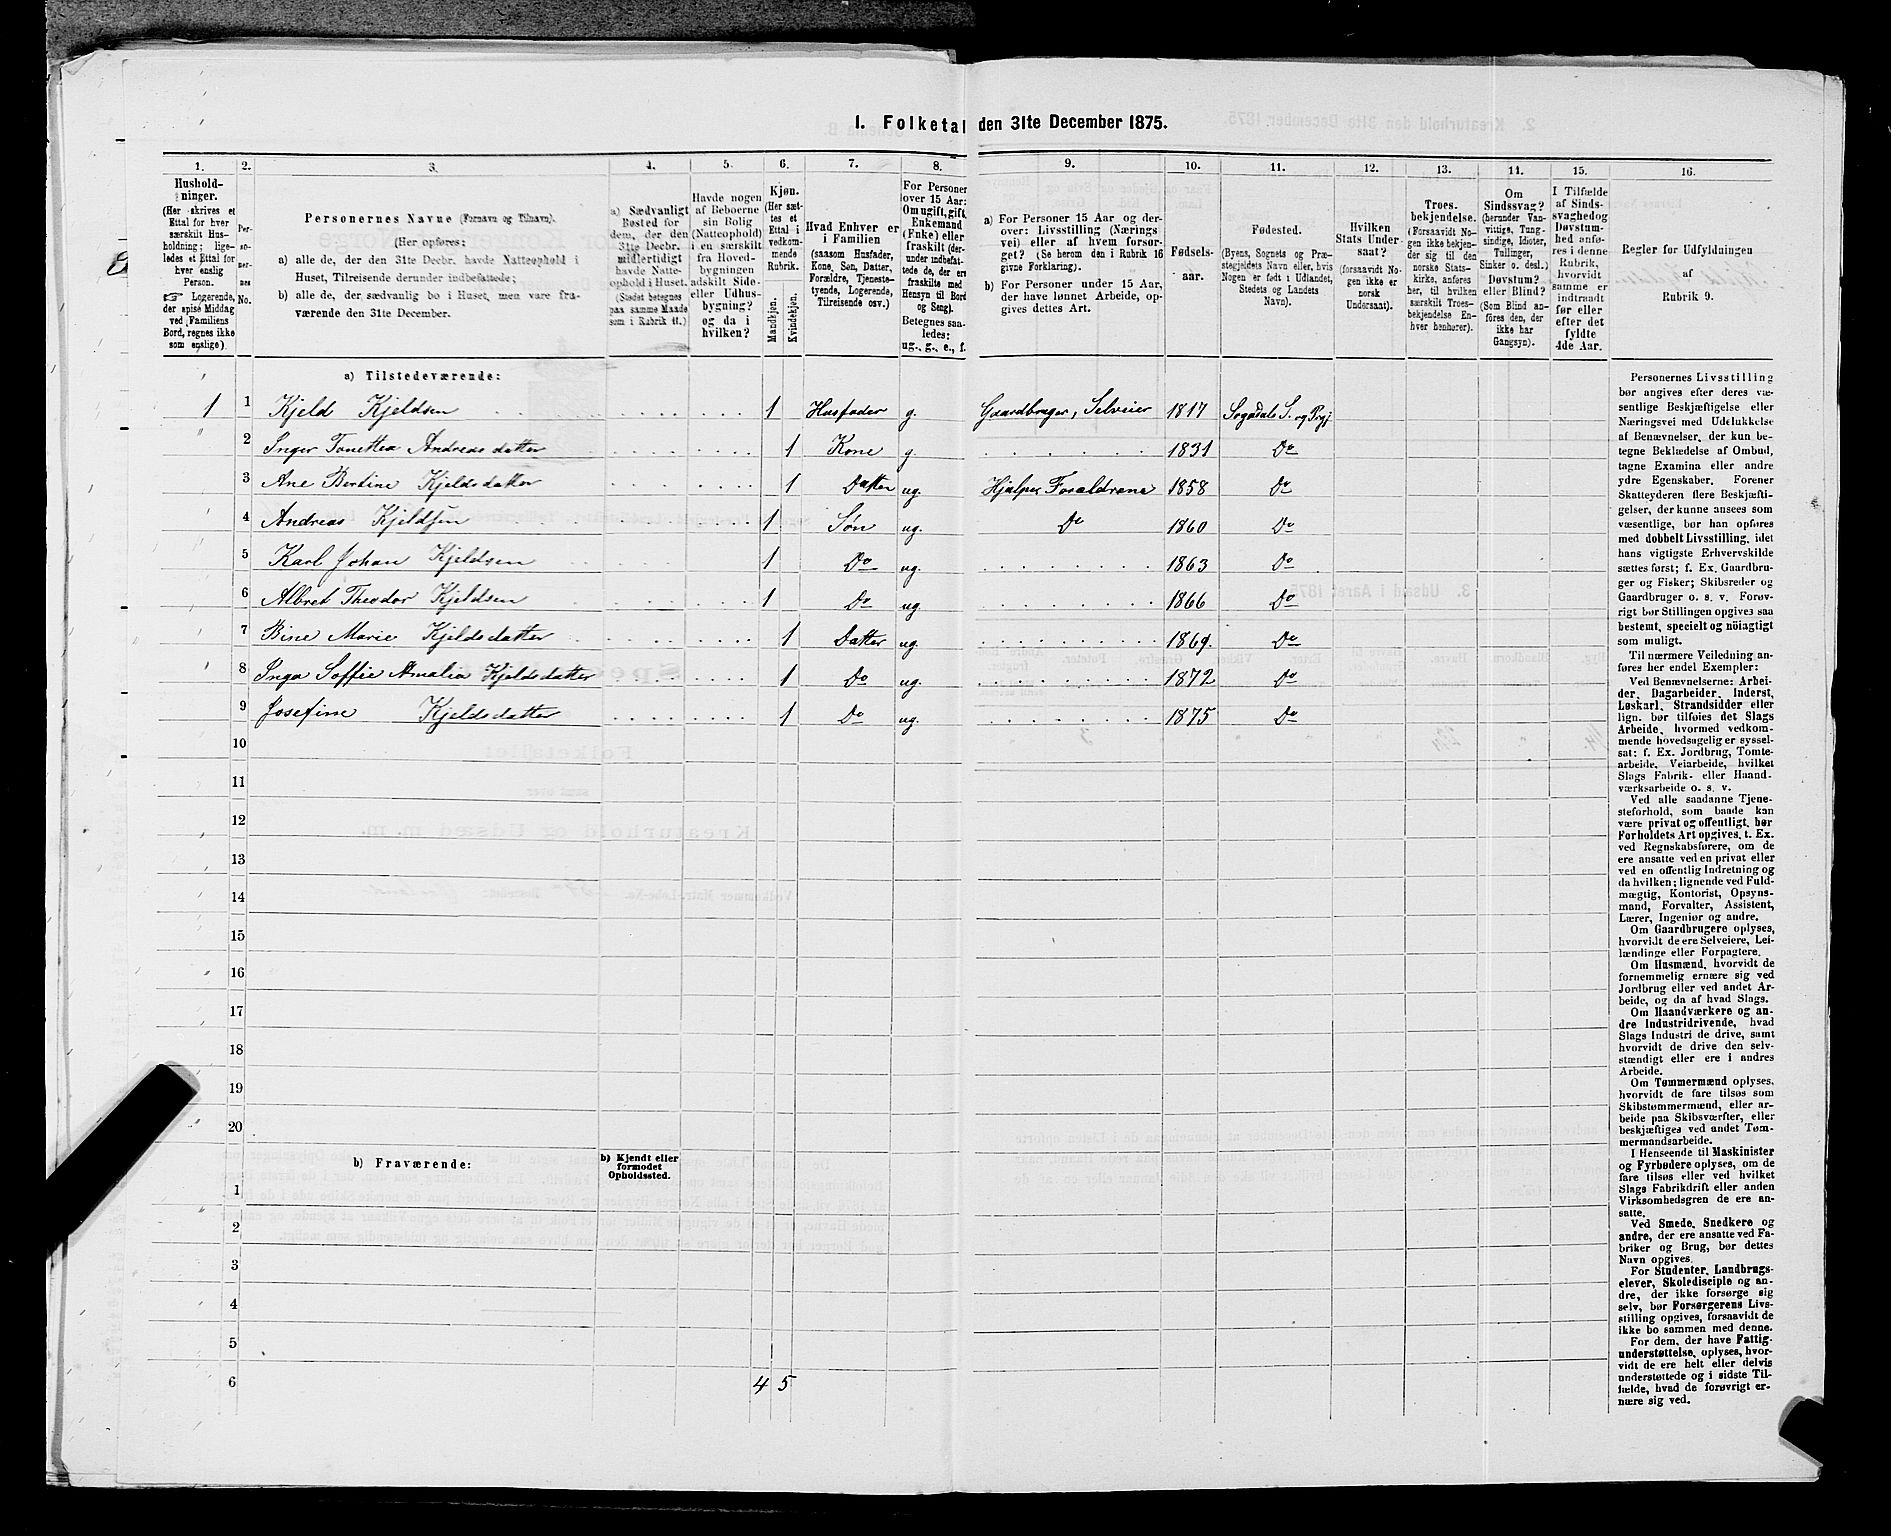 I. Folketal den 31te December 1875.
1. 2. 3. 4. 5. 6. 7. 8. 9. 10. 11. 12. 13. 14. 15. 16.
Hushold-
ninger.
(Her skrives et
Ettal for hver
særskilt Hus-
holdning; lige-
ledes et Ettal for
hver enslig
Person.
☞ Logerende,
der spise Middag
ved Familiens
Bord, regnes ikke
som enslige).
Per-
so-
ner-
nes
No.
Personernes Navne (Fornavn og Tilnavn).
(Her opføres:
a) alle de, der den 31te Decbr. havde Natteophold i
Huset, Tilreisende derunder indbefattede;
b) alle de, der sædvanlig bo i Huset, men vare fra-
værende den 31te December.
a) Sædvanligt
Bosted for
dem, der den
31te Decbr.
midlertidigt
havde Natte-
ophold i Huset.
(Stedet betegnes
paa samme Maade
som i Rubrik 11.)
Havde nogen
af Beboerne
sin Bolig
(Natteophold)
i en særskilt
fra Hoved-
bygningen
adskilt Side-
eller Udhus-
bygning?
og da i
hvilken?
Kjøn.
(Her sæt-
tes et
Ettal i
vedkom-
mende
Rubrik.
Mandkjøn.
Kvindekjøn.
Hvad Enhver er
i Familien
(saasom Husfader,
Kone, Søn, Datter,
Forældre, Tjeneste-
tyende, Logerende,
Tilreisende osv.)
For Personer
over 15 Aar:
Om ugift, gift,
Enkemand
(Enke) eller
fraskilt (der-
under indbefat-
tede de, der ere
fraskilte med
Hensyn til Bord
og Seng).
Betegnes saa-
ledes:
ug., g., e., f.
a) For Personer 15 Aar og der-
over: Livsstilling (Nærings
vei) eller af hvem forsør-
get? (Se herom den i Rubrik 16
givne Forklaring).
b) For Personer under 15 Aar,
der have lønnet Arbeide, op-
gives dettes Art.
Fødsels-
aar.
Fødested.
(Byens, Sognets og Præ-
stegjeldets Navn eller, hvis
Nogen er født i Udlandet,
Stedets og Landets
Navn).
Hvilken
Stats Under-
saat?
(forsaavidt No-
gen ikke er
norsk
Undersaat).
Troes-
bekjendelse.
(Forsaavidt No-
gen ikke bekjen-
der sig til den
norske Stats-
kirke, anføres
her, til hvilken
særskilt Troes-
bekjendelse En-
hver henhører).
Om
Sindssvag?
(herunder Van-
vittige, Tung-
sindige, Idioter,
Tullinger,
Sinker o. desl.)
Døvstum?
eller Blind?
(Som Blind an-
føres den, der
ikke har
Gangsyn).
I Tilfælde
af Sinds-
svaghed og
Døvstum-
hed anfø-
res i denne
Rubrik,
hvorvidt
samme er
indtraadt
før eller
efter det
fyldte
4de Aar.
Regler for Udfyldningen
af
Rubrik 9.
a) Tilstedeværende:
1 1 Kjeld Kjeldsen 1 Husfader g. Gaardbruger, Selveier 1817 Sogndals S. og Prgj.
2 Inger Tonettea Andreasdatter 1 Kone g. 1831 Do
3 Ane Bertine Kjeldsdatter 1 Datter ug. Hjælper Forældrene 1858 Do
4 Andreas Kjeldsen 1 Søn ug. Do 1860 Do
5 Karl Johan Kjeldsen 1 Do ug. 1863 Do
6 Albret Theodor Kjeldsen 1 Do ug. 1866 Do
7 Bine Marie Kjeldsdatter 1 Datter ug. 1869. Do
8 Inga Soffie Amalia Kjeldsdatter 1 Do ug. 1872 Do
9 Josefine Kjeldsdatter 1 Do ug. 1875 Do
10
11
12
13
14
15
16
17
18
19
20
b) Fraværende:
b) Kjendt eller
formodet
Opholdssted.
1
2
3
4
5
6
4 5
Personernes Livsstilling
bør angives efter deres væ-
sentlige Beskjæftigelse eller
Næringsvei med Udelukkelse
af Benævnelser, der kun be-
tegne Beklædelse af Ombud,
tagne Examina eller andre
ydre Egenskaber. Forener
Skatteyderen flere Beskjæfti-
gelser, der kunne ansees som
væsentlige, bør han opføres
med dobbelt Livsstilling, idet
hans vigtigste Erhvervskilde
sættes først; f. Ex. Gaardbru-
ger og Fisker; Skibsreder og
Gaardbruger o. s. v. Forøv-
rigt bør Stillingen opgives saa
bestemt, specielt og nöiagtigt
som muligt.
Til nærmere Veiledning an-
føres her endel Exempler:
Ved Benævnelserne: Arbei-
der, Dagarbeider, Inderst,
Løskarl, Strandsidder eller
lign. bør tilføies det Slags
Arbeide, hvormed vedkom-
mende hovedsagelig er syssel-
sat; f. Ex. Jordbrug, Tomte-
arbeide, Veiarbeide, hvilket
Slags Fabrik- eller Haand-
værksarbeide o. s. v.
Ved alle saadanne Tjene-
steforhold, som baade kan
være privat og offentligt, bør
Forholdets Art opgives, t. Ex.
ved Regnskabsførere, om de
ere ansatte ved en privat eller
ved en offentlig Indretning og
da hvilken; lignende ved Fuld-
mægtig, Kontorist, Opsyns-
mand, Forvalter, Assistent,
Lærer, Ingeniør og andre.
Om Gaardbrugere oplyses,
hvorvidt de ere Selveiere, Lei-
lændinge eller Forpagtere.
Om Husmænd, hvorvidt de
fornemmelig ernære sig ved
Jordbrug eller ved andet Ar-
beide, og da af hvad Slags.
Om Haandværkere og an-
dre Industridrivende, hvad
Slags Industri de drive, samt
hvorvidt de drive den selv-
stændigt eller ere i andres
Arbeide.
Om Tømmermænd oplyses,
hvorvidt de fare tilsøs som
Skibstømmermænd, eller ar-
beide paa Skibsværfter, eller
beskjæftiges ved andet Tøm-
mermandsarbeide.
I Henseende til Maskinister
og Fyrbødere oplyses, om de
fare tilsøs eller ved hvilket
Slags Fabrikdrift eller anden
Virksomhedsgren de ere an-
satte.
Ved Smede, Snedkere og
andre, der ere ansatte ved Fa-
briker og Brug, bør dettes
Navn opgives.
For Studenter, Landbrugs-
elever, Skoledisciple og an-
dre, der ikke forsørge sig
selv, bør Forsørgerens Livs-
stilling opgives, forsaavidt de
ikke bo sammen med denne.
For dem, der have Fattig-
understøttelse, oplyses, hvor-
vidt de ere helt eller delvis
understøttede og i sidste Til-
fælde, hvad de forøvrigt er-
nære sig ved.